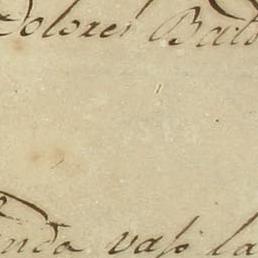 Dolores Balt
enda vaso la